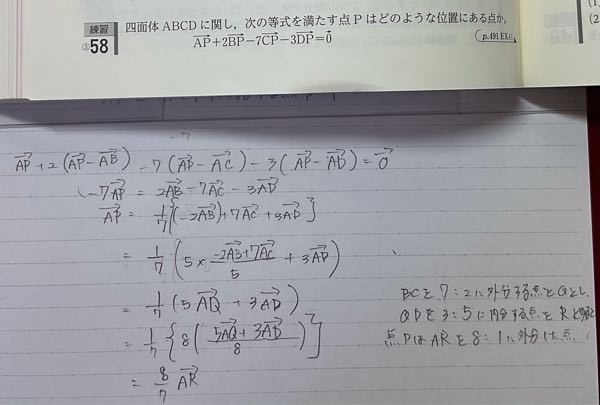 練習
③58
四面体 ABCD に関し,次の等式を満たす点 P はどのような位置にある点か。
$\overrightarrow{AP}+2\overrightarrow{BP}-7\overrightarrow{CP}-3\overrightarrow{DP}=\vec{0}$
p.491 EX
-7
$\overrightarrow{AP}+2(\overrightarrow{AP}-\overrightarrow{AB})-7(\overrightarrow{AP}-\overrightarrow{AC})-3(\overrightarrow{AP}-\overrightarrow{AD})=\vec{0}$
$-7\overrightarrow{AP}=2\overrightarrow{AB}-7\overrightarrow{AC}-3\overrightarrow{AD}$
$\overrightarrow{AP}=\frac{1}{7}\{(-2\overrightarrow{AB})+7\overrightarrow{AC}+3\overrightarrow{AD}\}$
$=\frac{1}{7}\left(5\times\frac{-2\overrightarrow{AB}+7\overrightarrow{AC}}{5}+3\overrightarrow{AD}\right)$
$=\frac{1}{7}(5\overrightarrow{AQ}+3\overrightarrow{AD})$
$=\frac{1}{7}\left\{8\left(\frac{5\overrightarrow{AQ}+3\overrightarrow{AD}}{8}\right)\right\}$
$=\frac{8}{7}\overrightarrow{AR}$
BCを7:2に外分する点をQとし、
QDを3:5に内分する点をRとすると
点PはARを8:1に外分した点